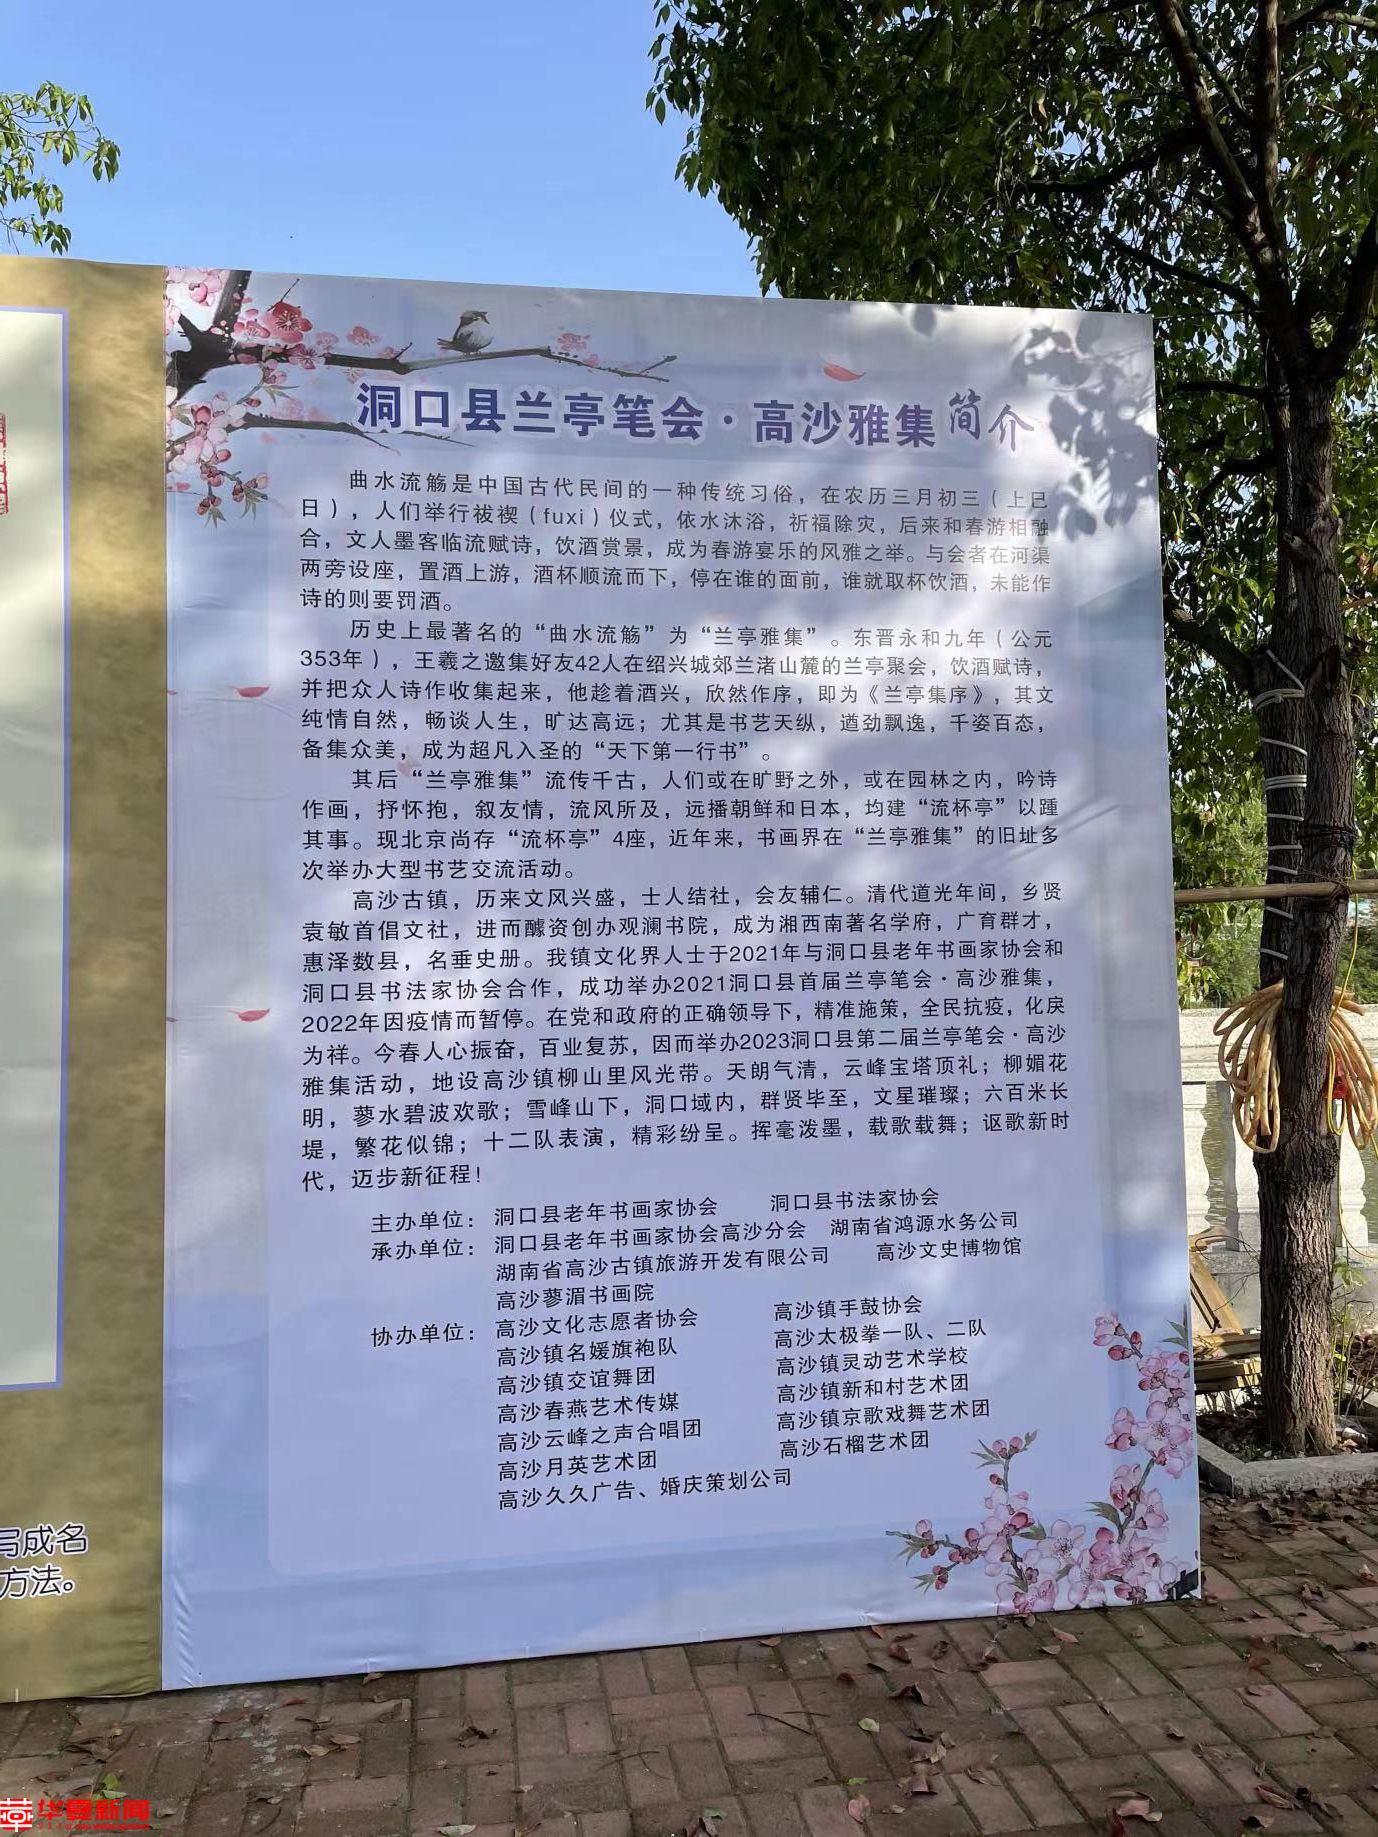 洞口县兰亭笔会·高沙雅集简介
曲水流觞是中国古代民间的一种传统习俗，在农历三月初三（上巳
日），人们举行祓禊（fuxi）仪式，依水沐浴，祈福除灾，后来和春游相融
合，文人墨客临流赋诗，饮酒赏景，成为春游宴乐的风雅之举。与会者在河渠
两旁设座，置酒上游，酒杯顺流而下，停在谁的面前，谁就取杯饮酒，未能作
诗的则要罚酒。
历史上最著名的“曲水流觞”为“兰亭雅集”。东晋永和九年（公元
353年），王羲之邀集好友42人在绍兴城郊兰渚山麓的兰亭聚会，饮酒赋诗，
并把众人诗作收集起来，他趁着酒兴，欣然作序，即为《兰亭集序》，其文
纯情自然，畅谈人生，旷达高远；尤其是书艺天纵，遒劲飘逸，千姿百态，
备集众美，成为超凡入圣的“天下第一行书”。
其后“兰亭雅集”流传千古，人们或在旷野之外，或在园林之内，吟诗
作画，抒怀抱，叙友情，流风所及，远播朝鲜和日本，均建“流杯亭”以踵
其事。现北京尚存“流杯亭”4座，近年来，书画界在“兰亭雅集”的旧址多
次举办大型书艺交流活动。
高沙古镇，历来文风兴盛，士人结社，会友辅仁。清代道光年间，乡贤
袁敏首倡文社，进而醵资创办观澜书院，成为湘西南著名学府，广育群才，
惠泽数县，名垂史册。我镇文化界人士于2021年与洞口县老年书画家协会和
洞口县书法家协会合作，成功举办2021洞口县首届兰亭笔会·高沙雅集，
2022年因疫情而暂停。在党和政府的正确领导下，精准施策，全民抗疫，化戾
为祥。今春人心振奋，百业复苏，因而举办2023洞口县第二届兰亭笔会·高沙
雅集活动，地设高沙镇柳山里风光带。天朗气清，云峰宝塔顶礼；柳媚花
明，蓼水碧波欢歌；雪峰山下，洞口域内，群贤毕至，文星璀璨；六百米长
堤，繁花似锦；十二队表演，精彩纷呈。挥毫泼墨，载歌载舞；讴歌新时
代，迈步新征程！
主办单位：洞口县老年书画家协会 洞口县书法家协会
承办单位：洞口县老年书画家协会高沙分会 湖南省鸿源水务公司
湖南省高沙古镇旅游开发有限公司 高沙文史博物馆
高沙蓼湄书画院
协办单位：高沙文化志愿者协会 高沙镇手鼓协会
高沙镇名媛旗袍队 高沙太极拳一队、二队
高沙镇交谊舞团 高沙镇灵动艺术学校
高沙春燕艺术传媒 高沙镇新和村艺术团
高沙云峰之声合唱团 高沙镇京歌戏舞艺术团
高沙月英艺术团 高沙石榴艺术团
高沙久久广告、婚庆策划公司
写成名
方法。
华夏新闻